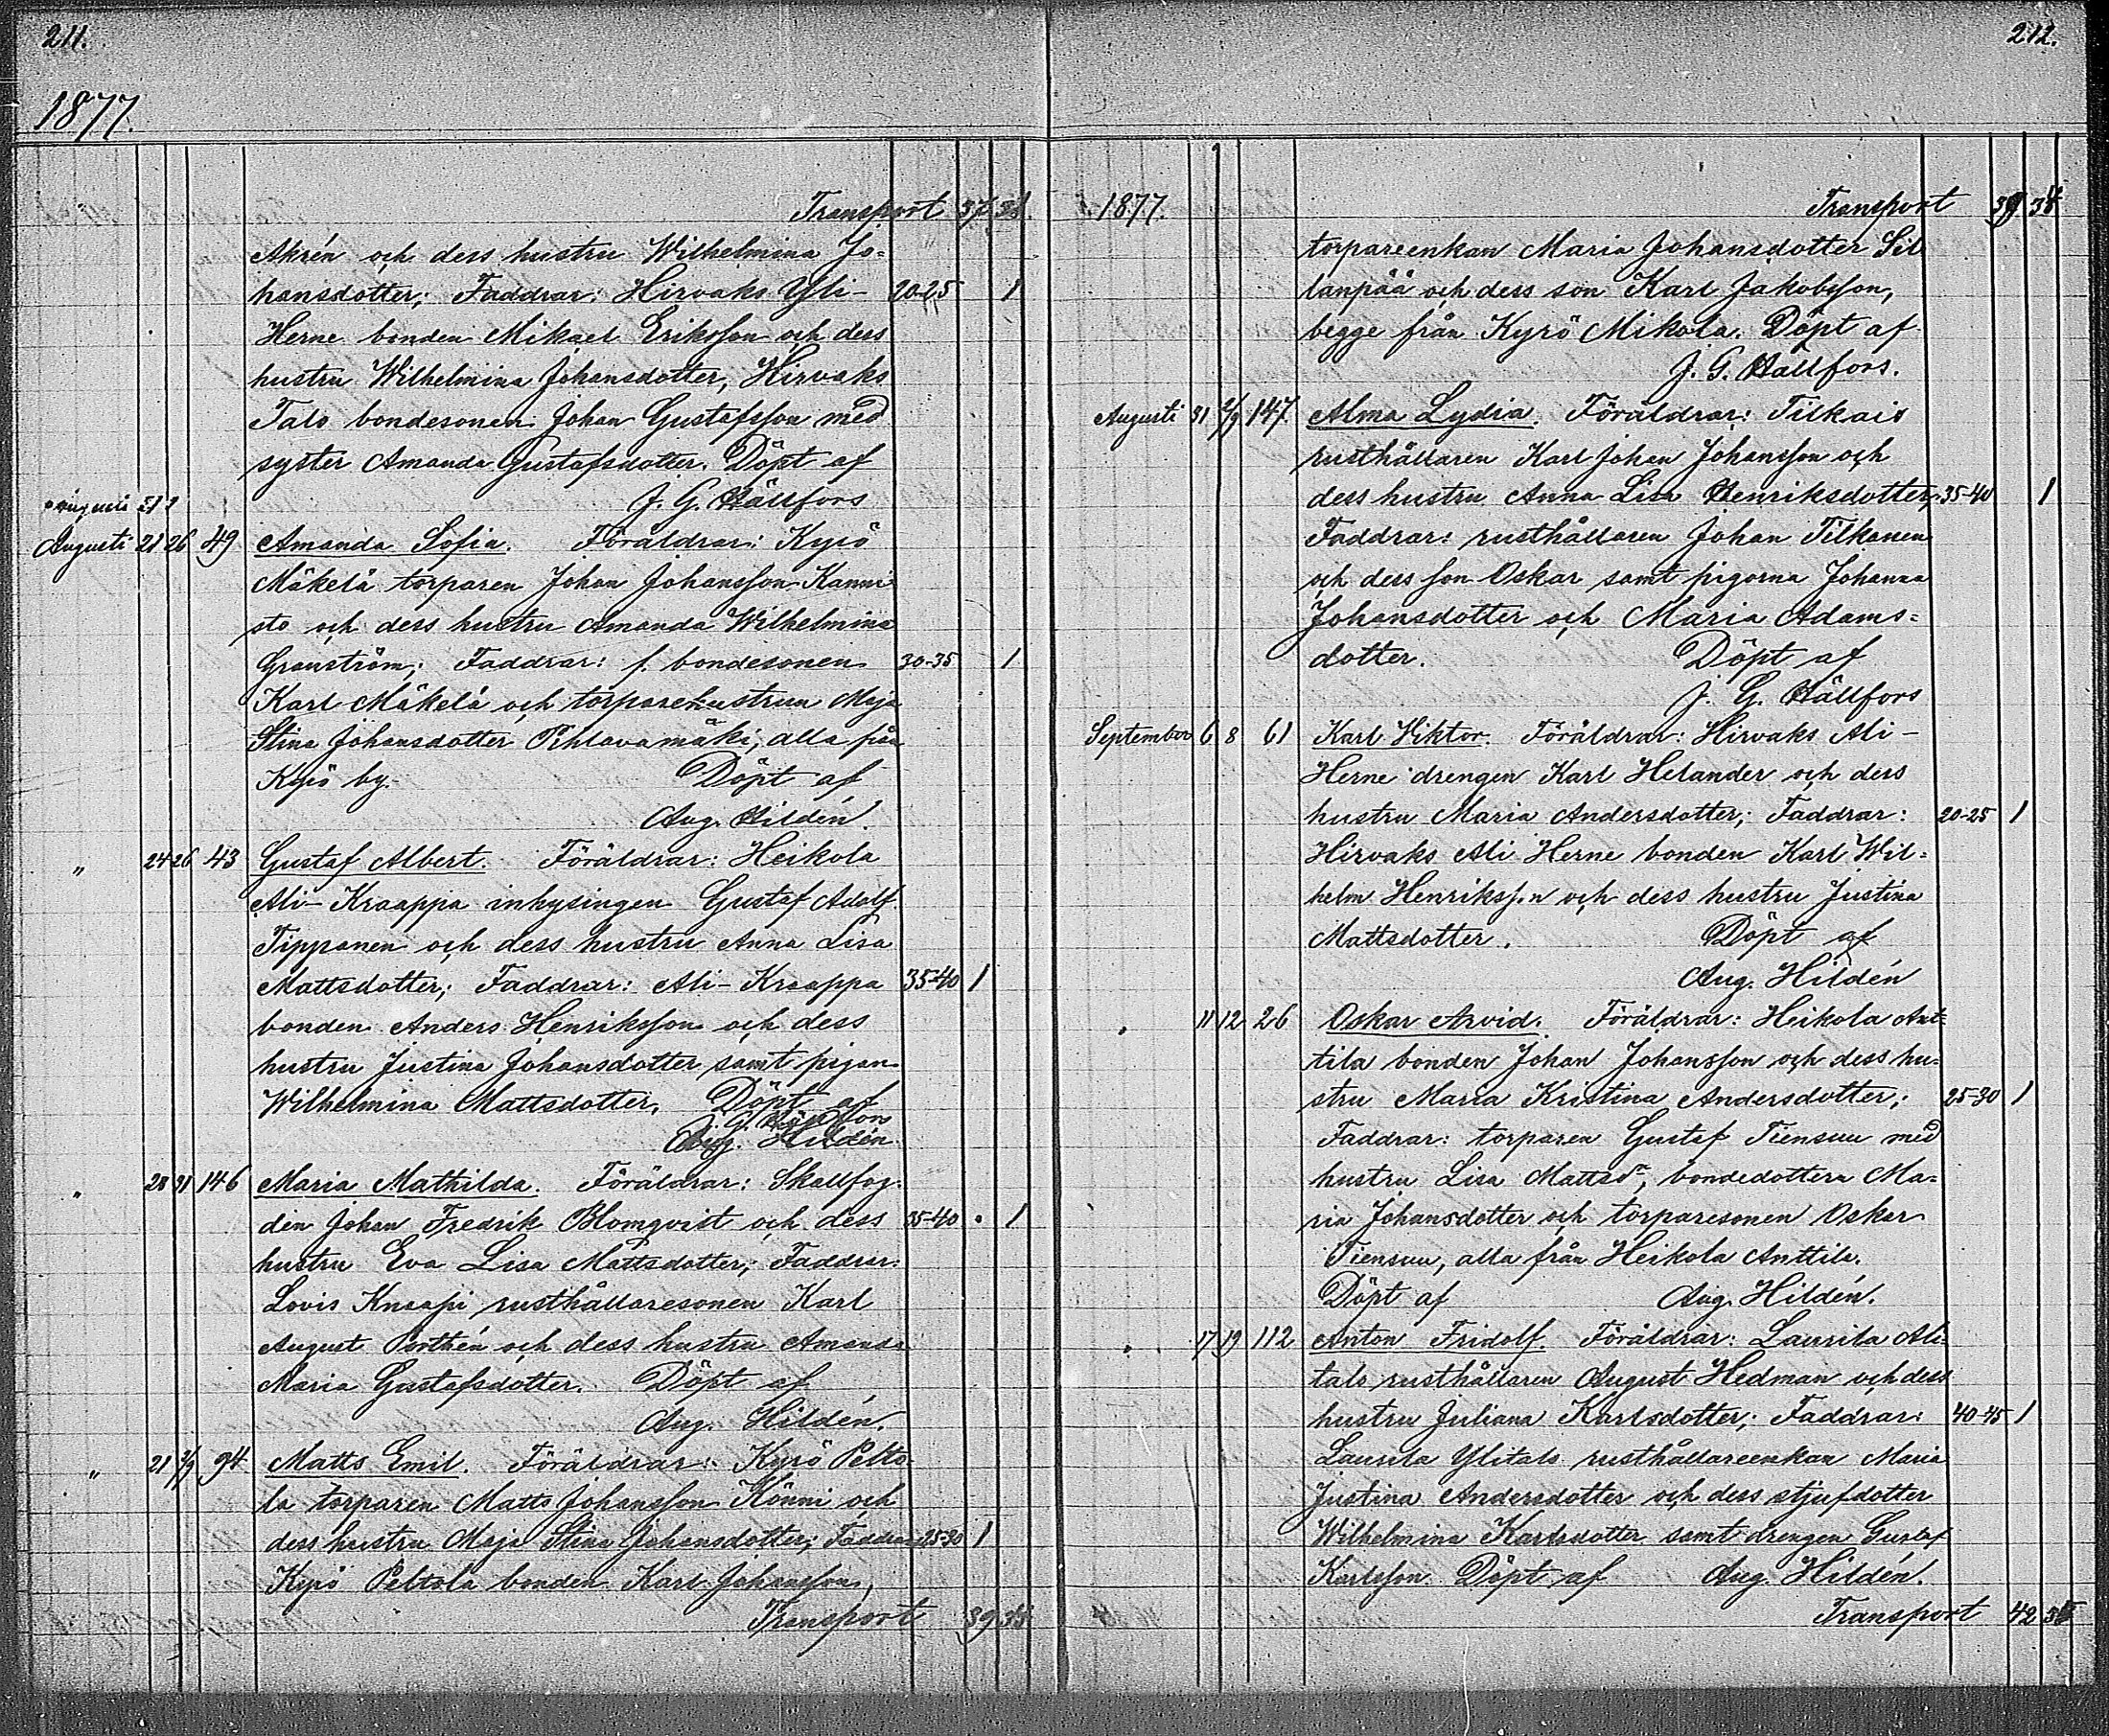 211.
1877.
Transport 37 31.
Akrén och dess hustru Wilhelmina Jo=
hansdotter; Faddrar: Hirvaks Yli- 20-25 1
Herne bonden Mikael Eriksson och dess
hustru Wilhelmina Johansdotter, Hirvaks
Talo bondesonen Johan Gustafsson med
syster Amanda Gustafsdotter. Döpt af
J. G. Hällfors
Augusti 21 26 49 Amanda Sofia. Föräldrar: Kyrö
Mäkelä torparen Johan Johansson Kanni
sto och dess hustru Amanda Wilhelmina
Granström; Faddrar: f. bondesonen 30-35 1
Karl Mäkelä och torparehustrun Maja
Stina Johansdotter Pihlavamäki, alla från
Kyrö by. Döpt af
Aug. Hildén.
" 24 26 43 Gustaf Albert. Föräldrar: Heikola
Ali-Kraappa inhysingen Gustaf Adolf
Tippanen och dess hustru Anna Lisa
Mattsdotter; Faddrar: Ali-Kraappa 35-40 1
bonden Anders Henriksson och dess
hustru Justina Johansdotter samt pigan
Wilhelmina Mattsdotter. Döpt af
J. G. Hällfors
Aug. Hildén.
" 28 31 146 Maria Mathilda. Föräldrar: Skallfog-
den Johan Fredrik Blomqvist och dess 35-40 . 1
hustru Eva Lisa Mattsdotter; Faddrar:
Lovis Knaapi rusthållaresonen Karl
August Porthén och dess hustru Amanda
Maria Gustafsdotter. Döpt af
Aug. Hildén.
" 21 2/9 94 Matts Emil. Föräldrar: Kyrö Pelto-
la torparen Matts Johansson Könni och
dess hustru Maja Stina Johansdotter; Faddrar 25-30 1
Kyrö Peltola bonden Karl Johansson,
Transport 39
212.
1877. Transport 39 34
torpareenkan Maria Johansdotter Sil
lanpää och dess son Karl Jakobsson,
begge från Kyrö Mikola. Döpt af
J. G. Hällfors.
Augusti 31 2/9 147. Alma Lydia. Föräldrar: Tilkais
rusthållaren Karl Johan Johansson och
dess hustru Anna Lisa Henriksdotter; 35-40 1
Faddrar: rusthållaren Johan Tilkanen
och dess son Oskar samt pigorna Johanna
Johansdotter och Maria Adams=
dotter. Döpt af
J. G. Hällfors
September 6 8 61 Karl Viktor. Föräldrar: Hirvaks Ali-
Herne drengen Karl Helander och dess
hustru Maria Andersdotter; Faddrar: 20-25 1
Hirvaks Ali Herne bonden Karl Wil=
helm Henriksson och dess hustru Justina
Mattsdotter. Döpt af
Aug. Hildén
" 11 12 26 Oskar Arvid. Föräldrar: Heikola Ant=
tila bonden Johan Johansson och dess hu=
stru Maria Kristina Andersdotter; 25-30 1
Faddrar: torparen Gustaf Tiensuu med
hustru Lisa Mattsdr, bondedottern Ma=
ria Johansdotter och torparesonen Oskar
Tiensuu, alla från Heikola Anttila.
Döpt af Aug. Hildén.
" 17 19 112 Anton Fridolf. Föräldrar: Laurila Ali=
talo rusthållaren August Hedman och dess
hustru Juliana Karlsdotter; Faddrar: 40-45 1
Laurila Ylitalo rusthållareenkan Maria
Justina Andersdotter och dess stjufdotter
Wilhelmina Karlsdotter samt drengen Gustaf
Karlsson. Döpt af Aug. Hildén.
Transport 42